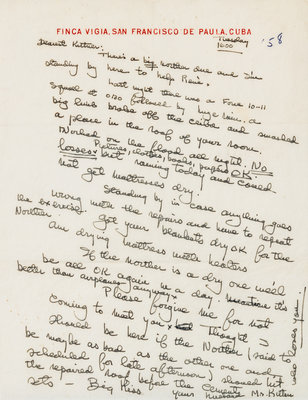 FINCA VIGIA, SAN FRANCISCO DE PAULA, CUBA
Tuesday
1600
'58
Dearest Kitten:
There's a big norther due and I'm
standing by here to help Rene.
Last night there was a Force 10-11
squall at 0130 followed by huge rain. A
big limb broke off the ceiba and smashed
a place in the roof of your room.
Worked on the flood all night. No
losses. Pictures, clothes, books, papers OK.
But raining today and could
not get mattress dry.
Standing by in case anything goes
wrong with the repairs and have to repeat
the exercise. Got your blankets dry OK for the
Norther.
Am drying mattress with heaters
If the norther is a dry one we'll
be all OK again in a day. it's
better than airplanes anyway.
Please forgive me for not
coming to meet you. Thought I
should be here if the Norther (said to
be maybe as bad as the other one and
scheduled for late afternoon) should hit
the repaired roof before the cement
sets — Big Kiss
your husband Mr. Kitten
who loves you